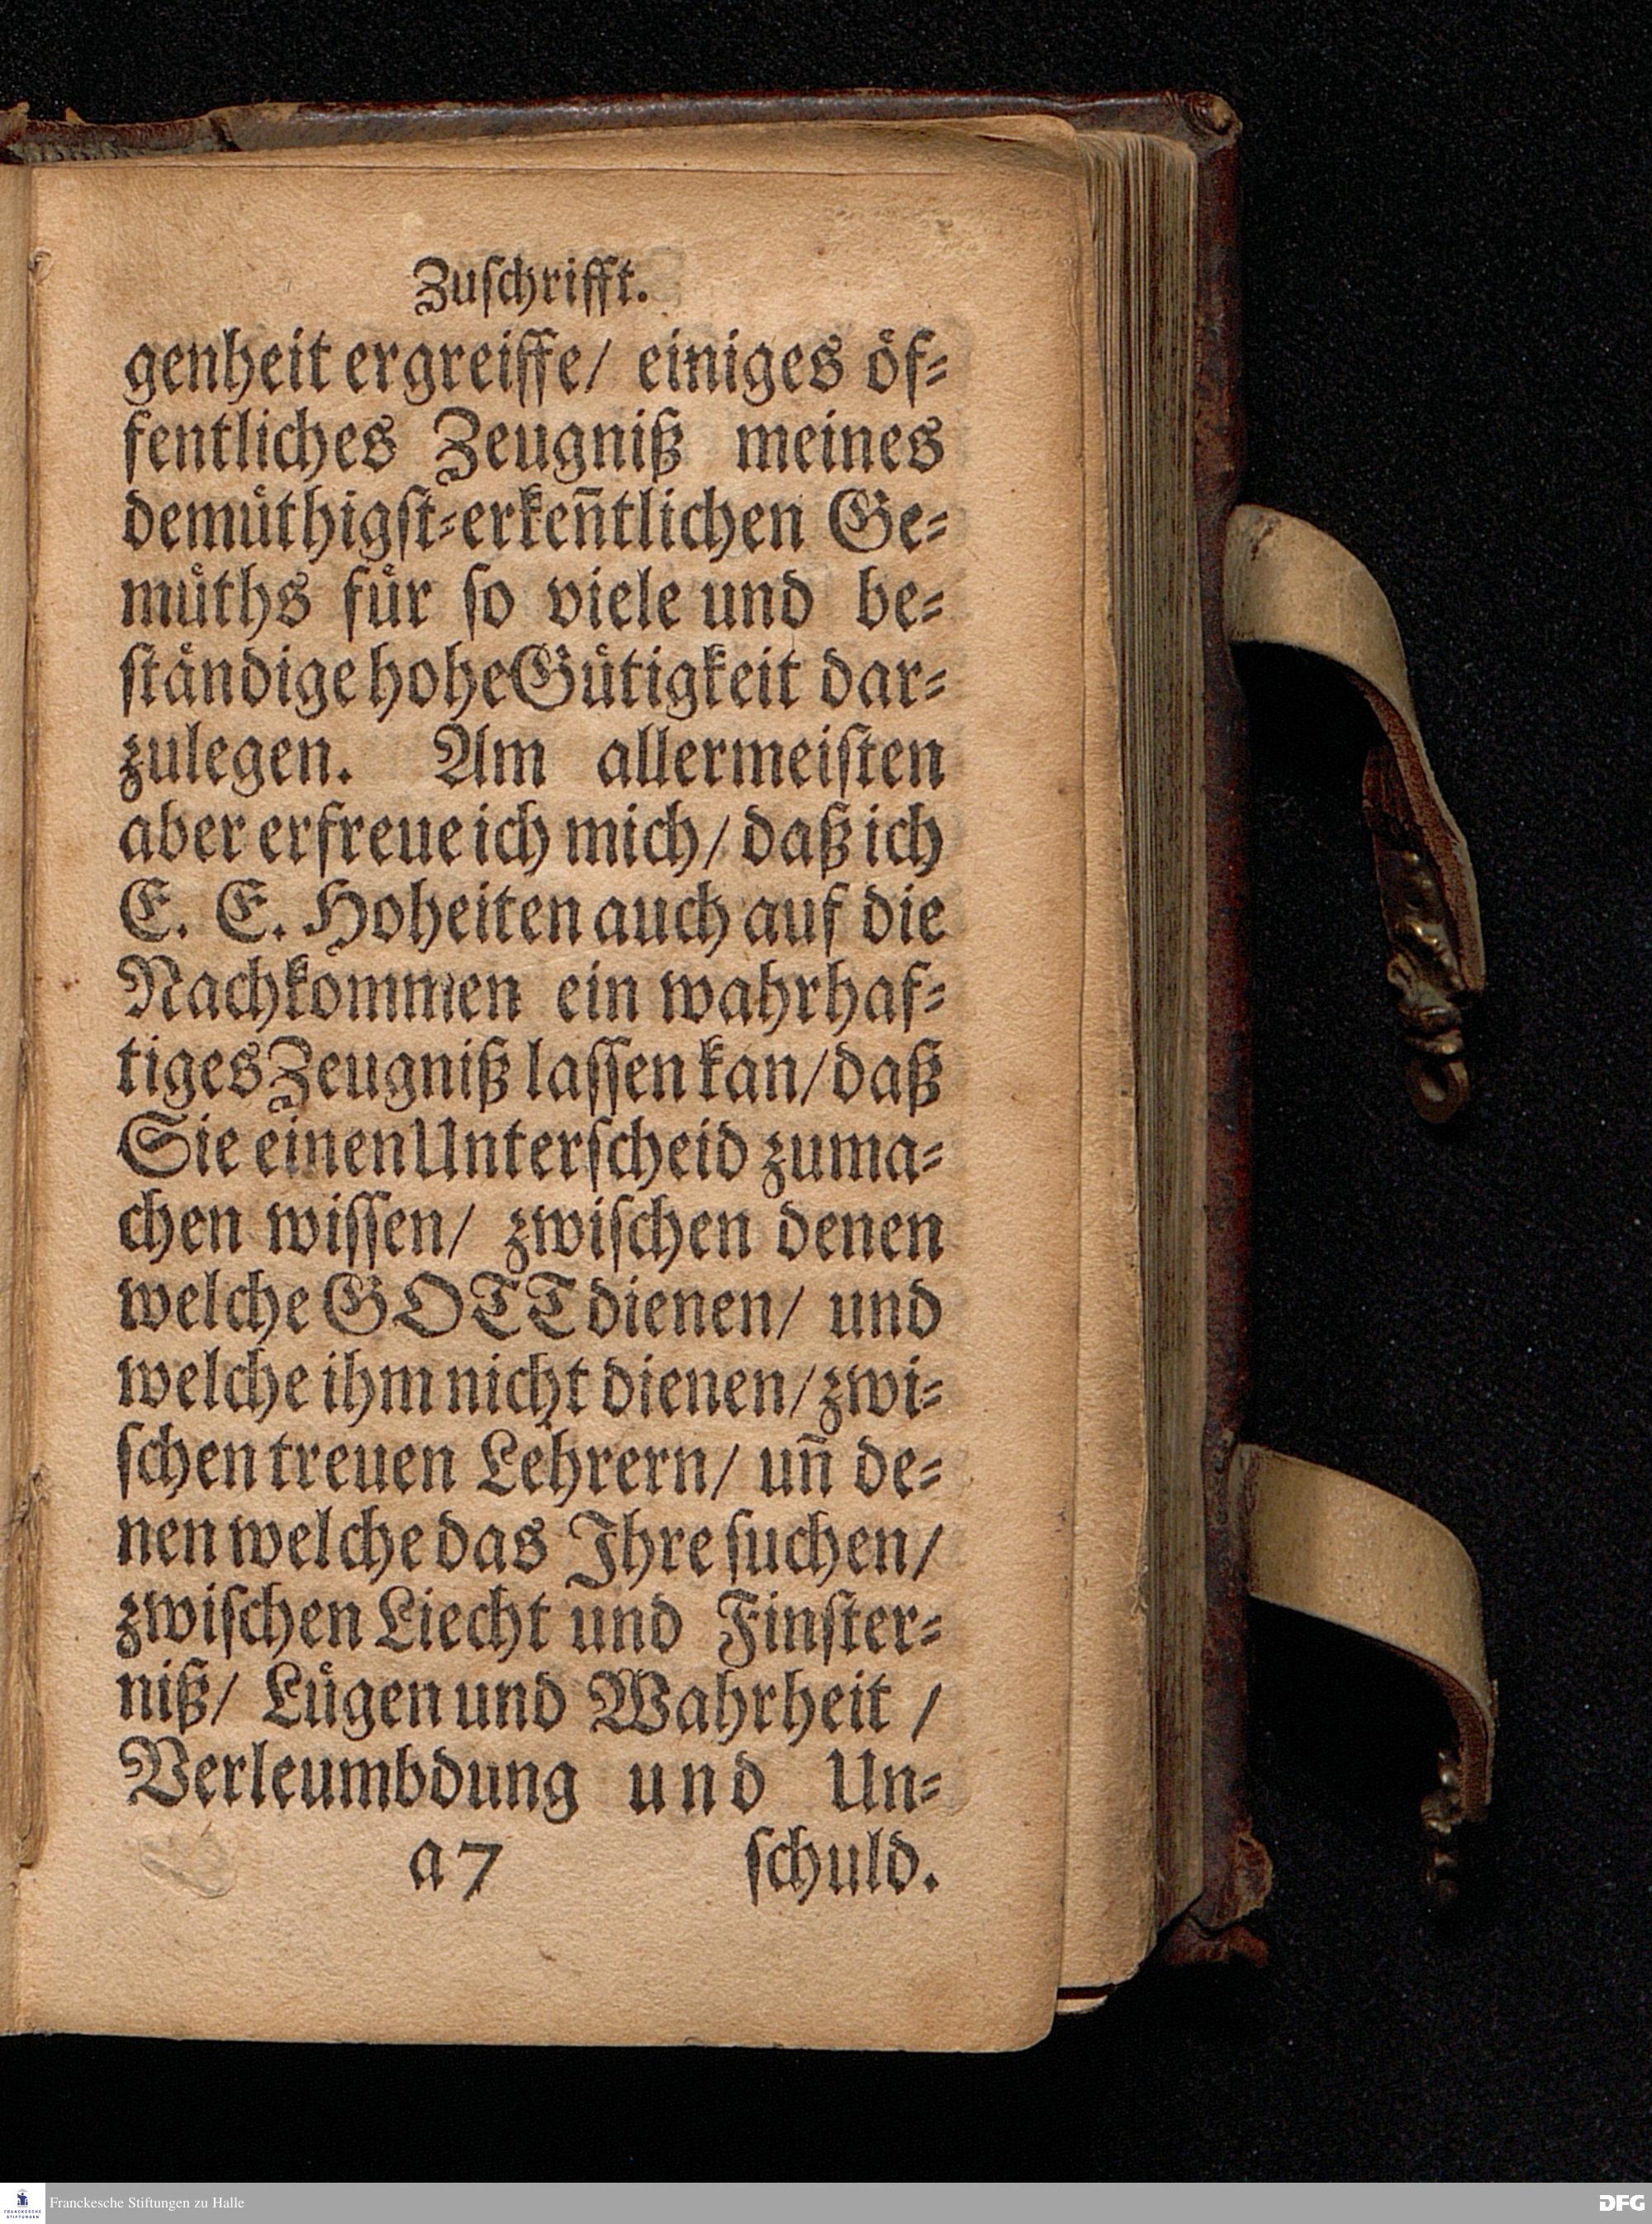 Zuſchrifft.
genheit ergreiffe/ einiges oͤf⸗
fentliches Zeugniß meines
demuͤthigſt⸗erken̄tlichen Ge⸗
muͤths fuͤr ſo viele und be⸗
ſtaͤndige hohe Guͤtigkeit dar⸗
zulegen. Am allermeiſten
aber erfreue ich mich/ daß ich
E. E. Hoheiten auch auf die
Nachkommen ein wahrhaf⸗
tiges Zeugniß laſſen kan/ daß
Sie einen Unterſcheid zuma⸗
chen wiſſen/ zwiſchen denen
welche GOTT dienen/ und
welche ihm nicht dienen/ zwi⸗
ſchen treuen Lehrern/ un̄ de⸗
nen welche das Ihre ſuchen/
zwiſchen Liecht und Finſter⸗
niß/ Luͤgen und Wahrheit /
Verleumbdung und Un⸗
a7 ſchuld.
Franckesche Stiftungen zu Halle
FRANCKESCHE
STIFTUNGEN
DFG